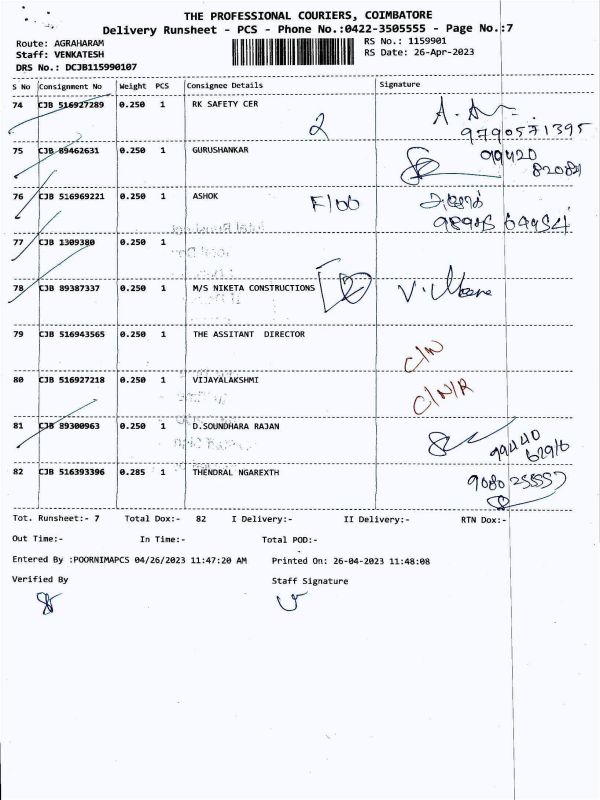 THE PROFESSIONAL COURIERS, COIMBATORE
Delivery Runsheet - PCS - Phone No.:0422-3505555 - Page No.:7
Route: AGRAHARAM
Staff: VENKATESH
DRS No.: DCJB115990107
RS No.: 1159901
RS Date: 26-Apr-2023
S No Consignment No Weight PCS Consignee Details Signature
74 CJB 516927289 0.250 1 RK SAFETY CER
2
9790571395
75 CJB 89462631 0.250 1 GURUSHANKAR
76 CJB 516969221 0.250 1 ASHOK
77 CJB 1309380 0.250 1
78 CJB 89387337 0.250 1 M/S NIKETA CONSTRUCTIONS
79 CJB 516943565 0.250 1 THE ASSITANT DIRECTOR
C/N
80 CJB 516927218 0.250 1 VIJAYALAKSHMI
C/N/R
81 CJB 89300963 0.250 1 D.SOUNDHARA RAJAN
99440
62916
82 CJB 516393396 0.285 1 THENDRAL NGAREXTH
Tot. Runsheet:- 7 Total Dox:- 82 I Delivery:- II Delivery:- RTN Dox:-
Out Time:- In Time:- Total POD:-
Entered By :POORNIMAPCS 04/26/2023 11:47:20 AM Printed On: 26-04-2023 11:48:08
Verified By Staff Signature